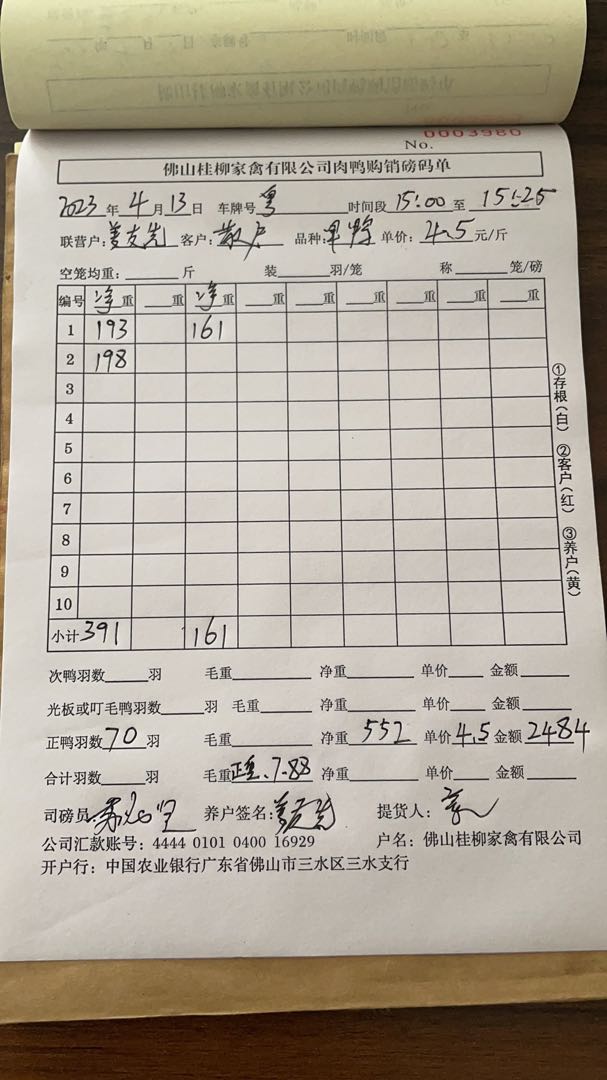 0003980
No.
佛山桂柳家禽有限公司肉鸭购销磅码单
2023年4月13日 车牌号 粤 时间段 15:00 至 15:25
联营户: 姜友先 客户: 散户 品种: 单价: 4.5 元/斤
空笼均重: 斤 装 羽/笼 称 笼/磅
编号 净重 重 净重 重 重 重 重 重
1 193 161
2 198
3
4
5
6
7
8
9
10
小计 391 161
①存根(白) ②客户(红) ③养户(黄)
次鸭羽数 羽 毛重 净重 单价 金额
光板或叮毛鸭羽数 羽 毛重 净重 单价 金额
正鸭羽数 70 羽 毛重 净重 552 单价 4.5 金额 2484
合计羽数 羽 毛重 7.88 净重 单价 金额
司磅员: 养户签名: 姜友先 提货人:
公司汇款账号: 4444 0101 0400 16929 户名: 佛山桂柳家禽有限公司
开户行: 中国农业银行广东省佛山市三水区三水支行